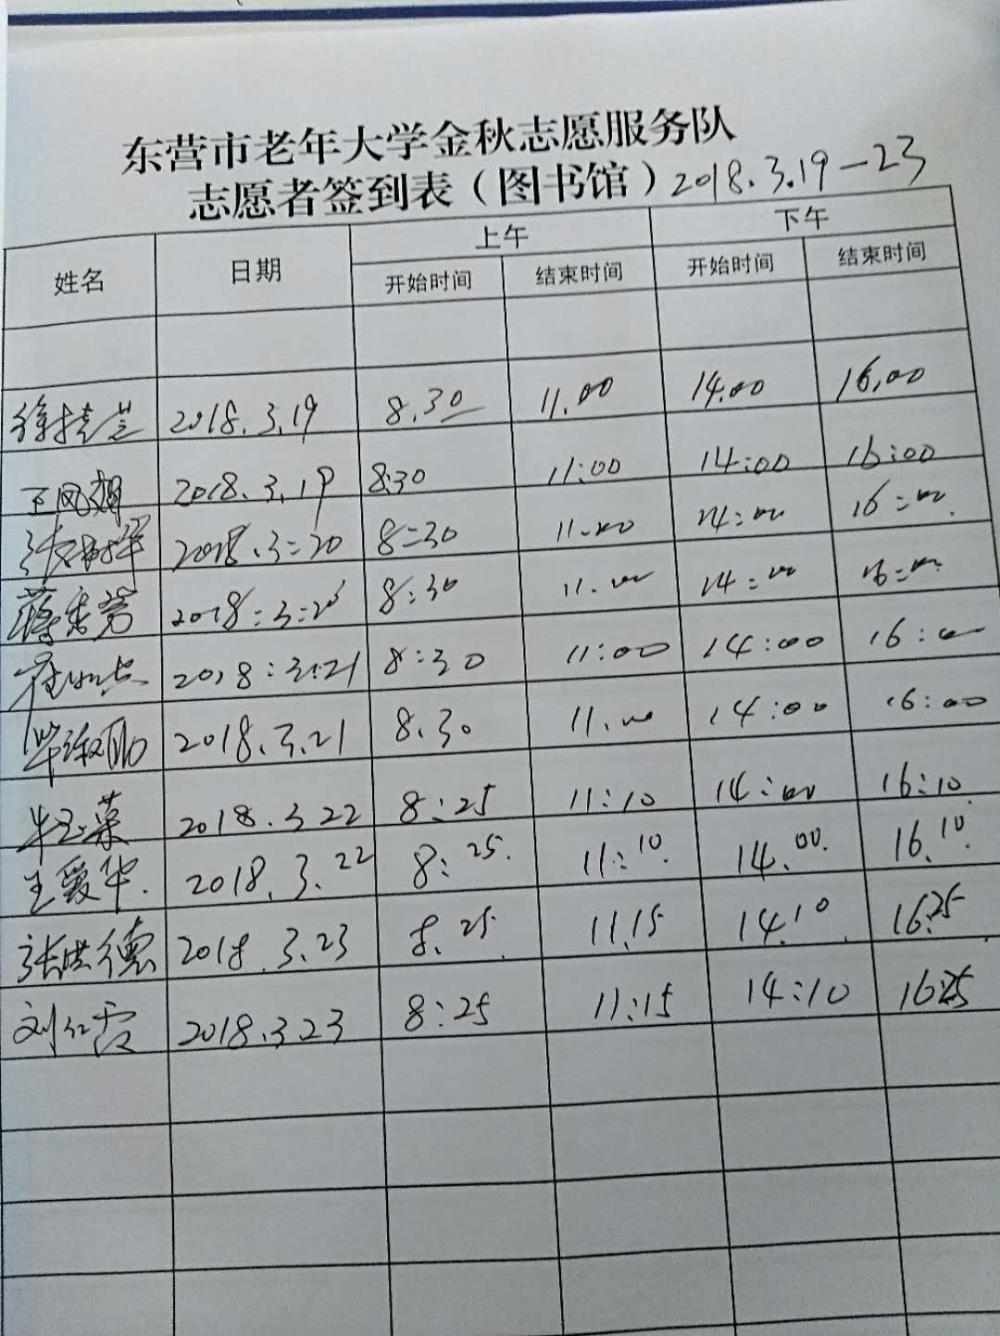 东营市老年大学金秋志愿服务队
志愿者签到表（图书馆）2018.3.19-23
姓名 日期 上午 下午
开始时间 结束时间 开始时间 结束时间
2018.3.19 8.30 11.00 14.00 16.00
王凤翔 2018.3.19 8:30 11:00 14:00 16:00
2018.3:20 8:30 11.00 14:00 16:00
蒋秀芳 2018:3:20 8:30 11.00 14:00 16:00
2018:3:21 8:30 11:00 14:00 16:00
2018.3.21 8.30 11.00 14:00 16:00
牛玉荣 2018.3.22 8:25 11:10 14:00 16:10
王爱华. 2018.3.22 8:25. 11:10. 14.00. 16.10.
张洪德 2018.3.23 8.25 11.15 14.10 16.25
刘红霞 2018.3.23 8:25 11:15 14:10 16:25